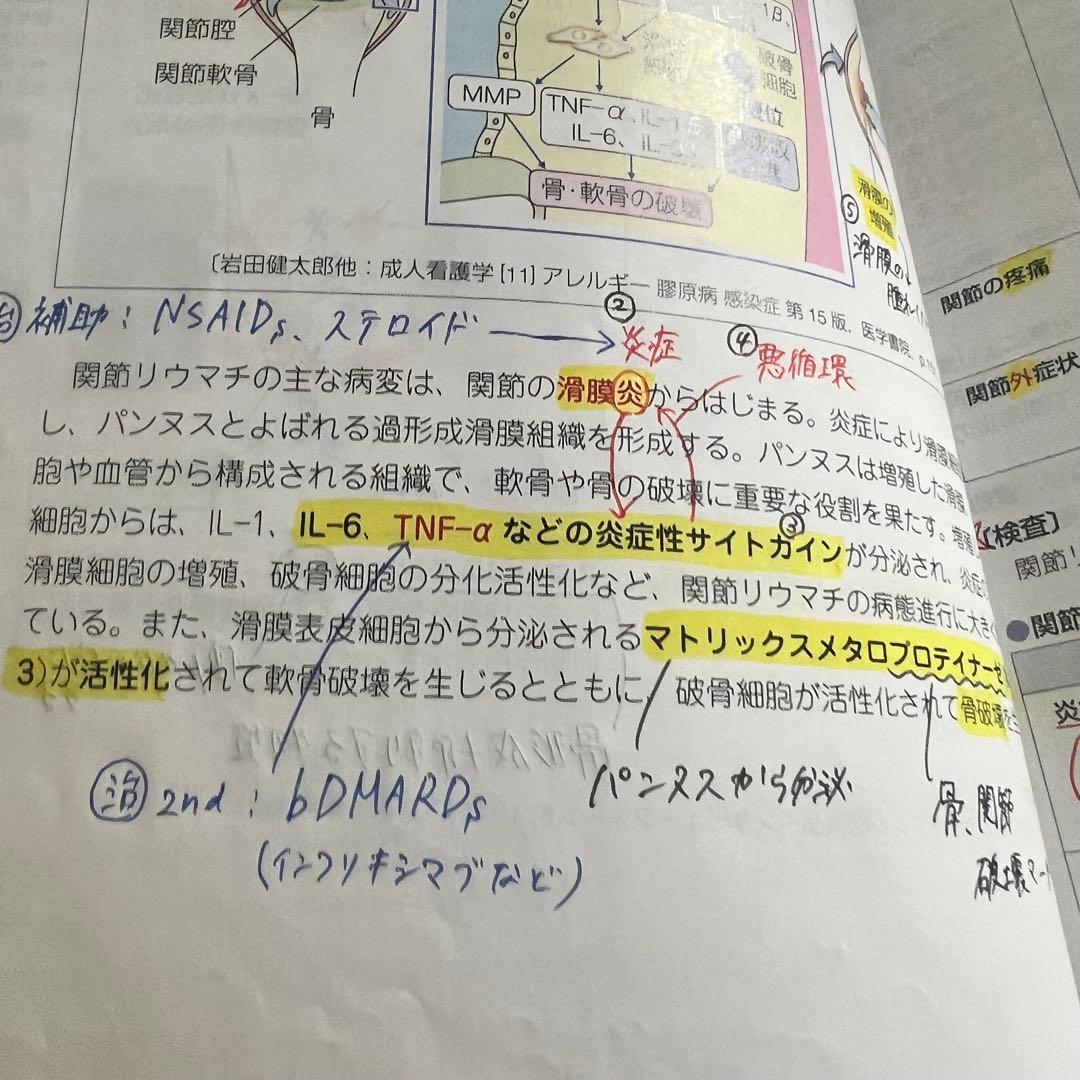 関節腔
関節軟骨
骨
MMP
TNF-α、IL-1β
IL-6、IL-33
破骨
細胞
骨・軟骨の破壊
滑膜の
増殖
⑤
滑膜の
〔岩田健太郎他：成人看護学[11]アレルギー 膠原病 感染症 第15版，医学書院，
補助：NSAIDs、ステロイド
② 炎症
④ 悪循環
関節リウマチの主な病変は、関節の滑膜炎からはじまる。炎症により滑膜
し、パンヌスとよばれる過形成滑膜組織を形成する。パンヌスは増殖した滑膜
胞や血管から構成される組織で、軟骨や骨の破壊に重要な役割を果たす。増殖
③
細胞からは、IL-1、IL-6、TNF-αなどの炎症性サイトカインが分泌され、炎症
滑膜細胞の増殖、破骨細胞の分化活性化など、関節リウマチの病態進行に大きく
ている。また、滑膜表皮細胞から分泌されるマトリックスメタロプロテイナーゼ
3)が活性化されて軟骨破壊を生じるとともに、破骨細胞が活性化されて骨破壊を
治 2nd：bDMARDs
(インフリキシマブなど)
パンヌスから分泌
骨、関節
破壊マー
関節の疼痛
関節外症状
検査〕
関節リ
●関節
炎